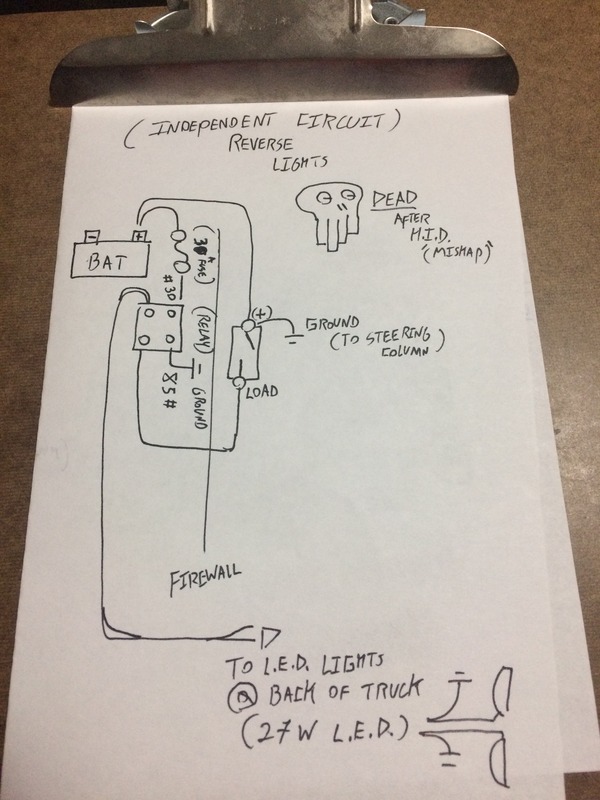 (INDEPENDENT CIRCUIT)
REVERSE
LIGHTS
DEAD
AFTER
H.I.D.
"(MISHAP)"
- +
BAT
(30A FUSE)
#30
(RELAY)
85#
GROUND
(+)
GROUND
(TO STEERING
COLUMN)
LOAD
FIREWALL
TO L.E.D. LIGHTS
@ BACK OF TRUCK
(27W L.E.D.)